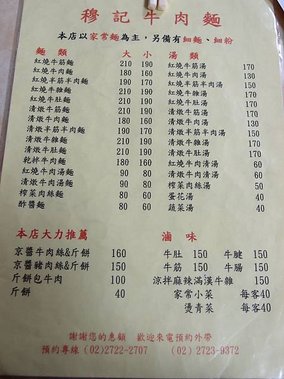 穆記牛肉麵
本店以家常麵為主，另備有細麵、細粉
麵類 大 小
紅燒牛筋麵 210 190
紅燒牛肉麵 180 160
紅燒羊筋羊肉麵 190 170
紅燒牛雜麵 210 190
紅燒牛肚麵 210 190
清燉牛筋麵 210 190
清燉牛肉麵 180 160
清燉羊筋羊肉麵 190 170
清燉牛雜麵 210 190
清燉牛肚麵 210 190
乾拌牛肉麵 180 160
紅燒牛肉湯麵 90 80
清燉牛肉湯麵 90 80
榨菜肉絲麵 80 60
酢醬麵 80 60
湯類
紅燒牛筋湯 170
紅燒牛肉湯 130
紅燒羊筋羊肉湯 150
紅燒牛雜湯 170
紅燒牛肚湯 170
清燉牛筋湯 170
清燉牛肉湯 130
清燉羊筋羊肉湯 150
清燉牛雜湯 170
清燉牛肚湯 170
紅燒牛肉清湯 60
清燉牛肉清湯 60
榨菜肉絲湯 50
蛋花湯 40
蔬菜湯 40
本店大力推薦
京醬牛肉絲&斤餅 160
京醬豬肉絲&斤餅 150
斤餅包牛肉 100
斤餅 40
滷味
牛肚 150 牛腱 150
牛筋 150 牛腸 150
涼拌麻辣滿漢牛雜 150
家常小菜 每客40
燙青菜 每客40
謝謝您的惠顧 歡迎來電預約外帶
預約專線 (02)2722-2707 (02) 2723-9372